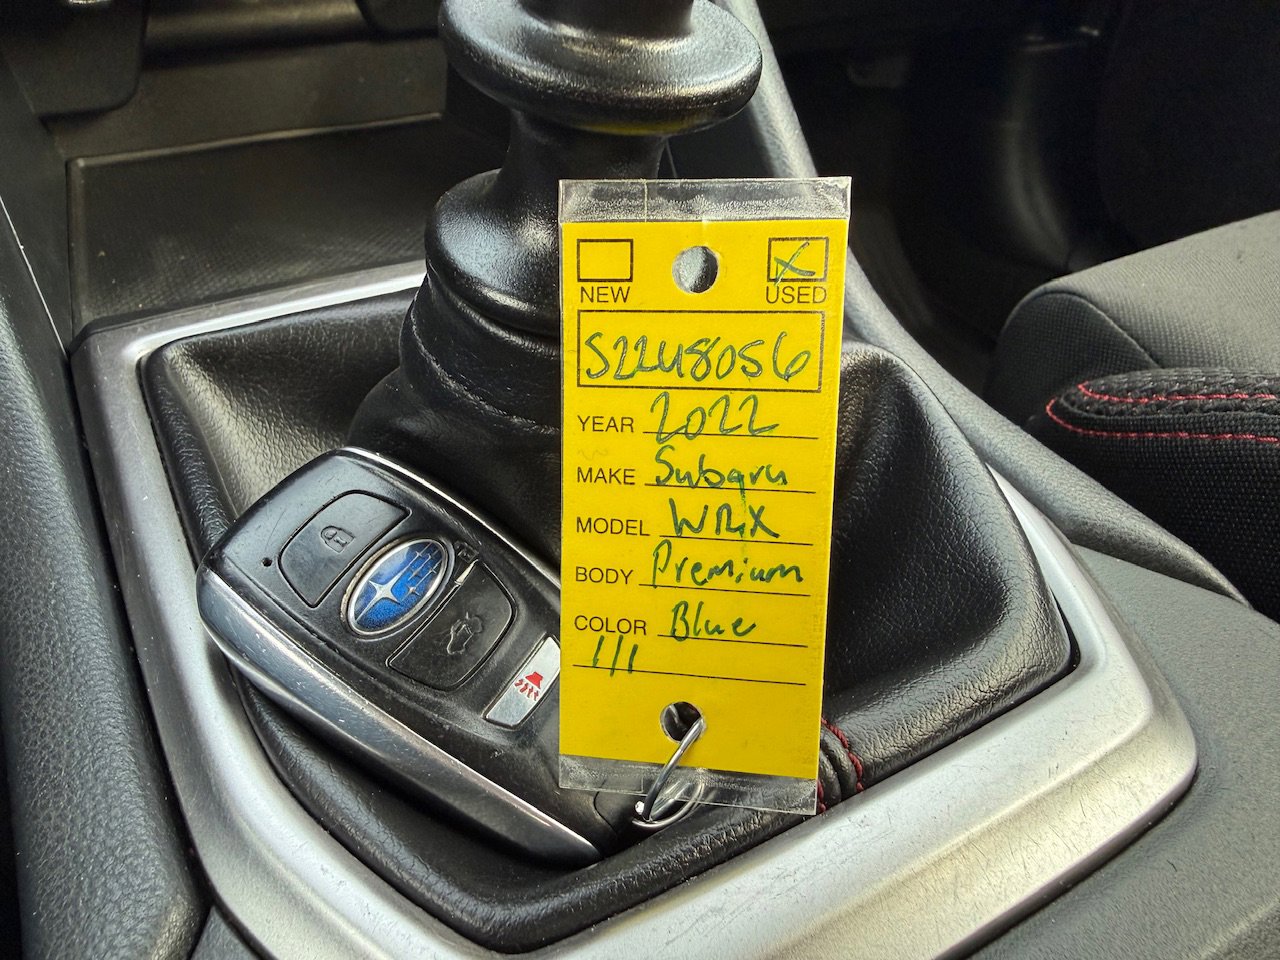 NEW USED
S2248056
YEAR 2022
MAKE Subaru
MODEL WRX
BODY Premium
COLOR Blue
111